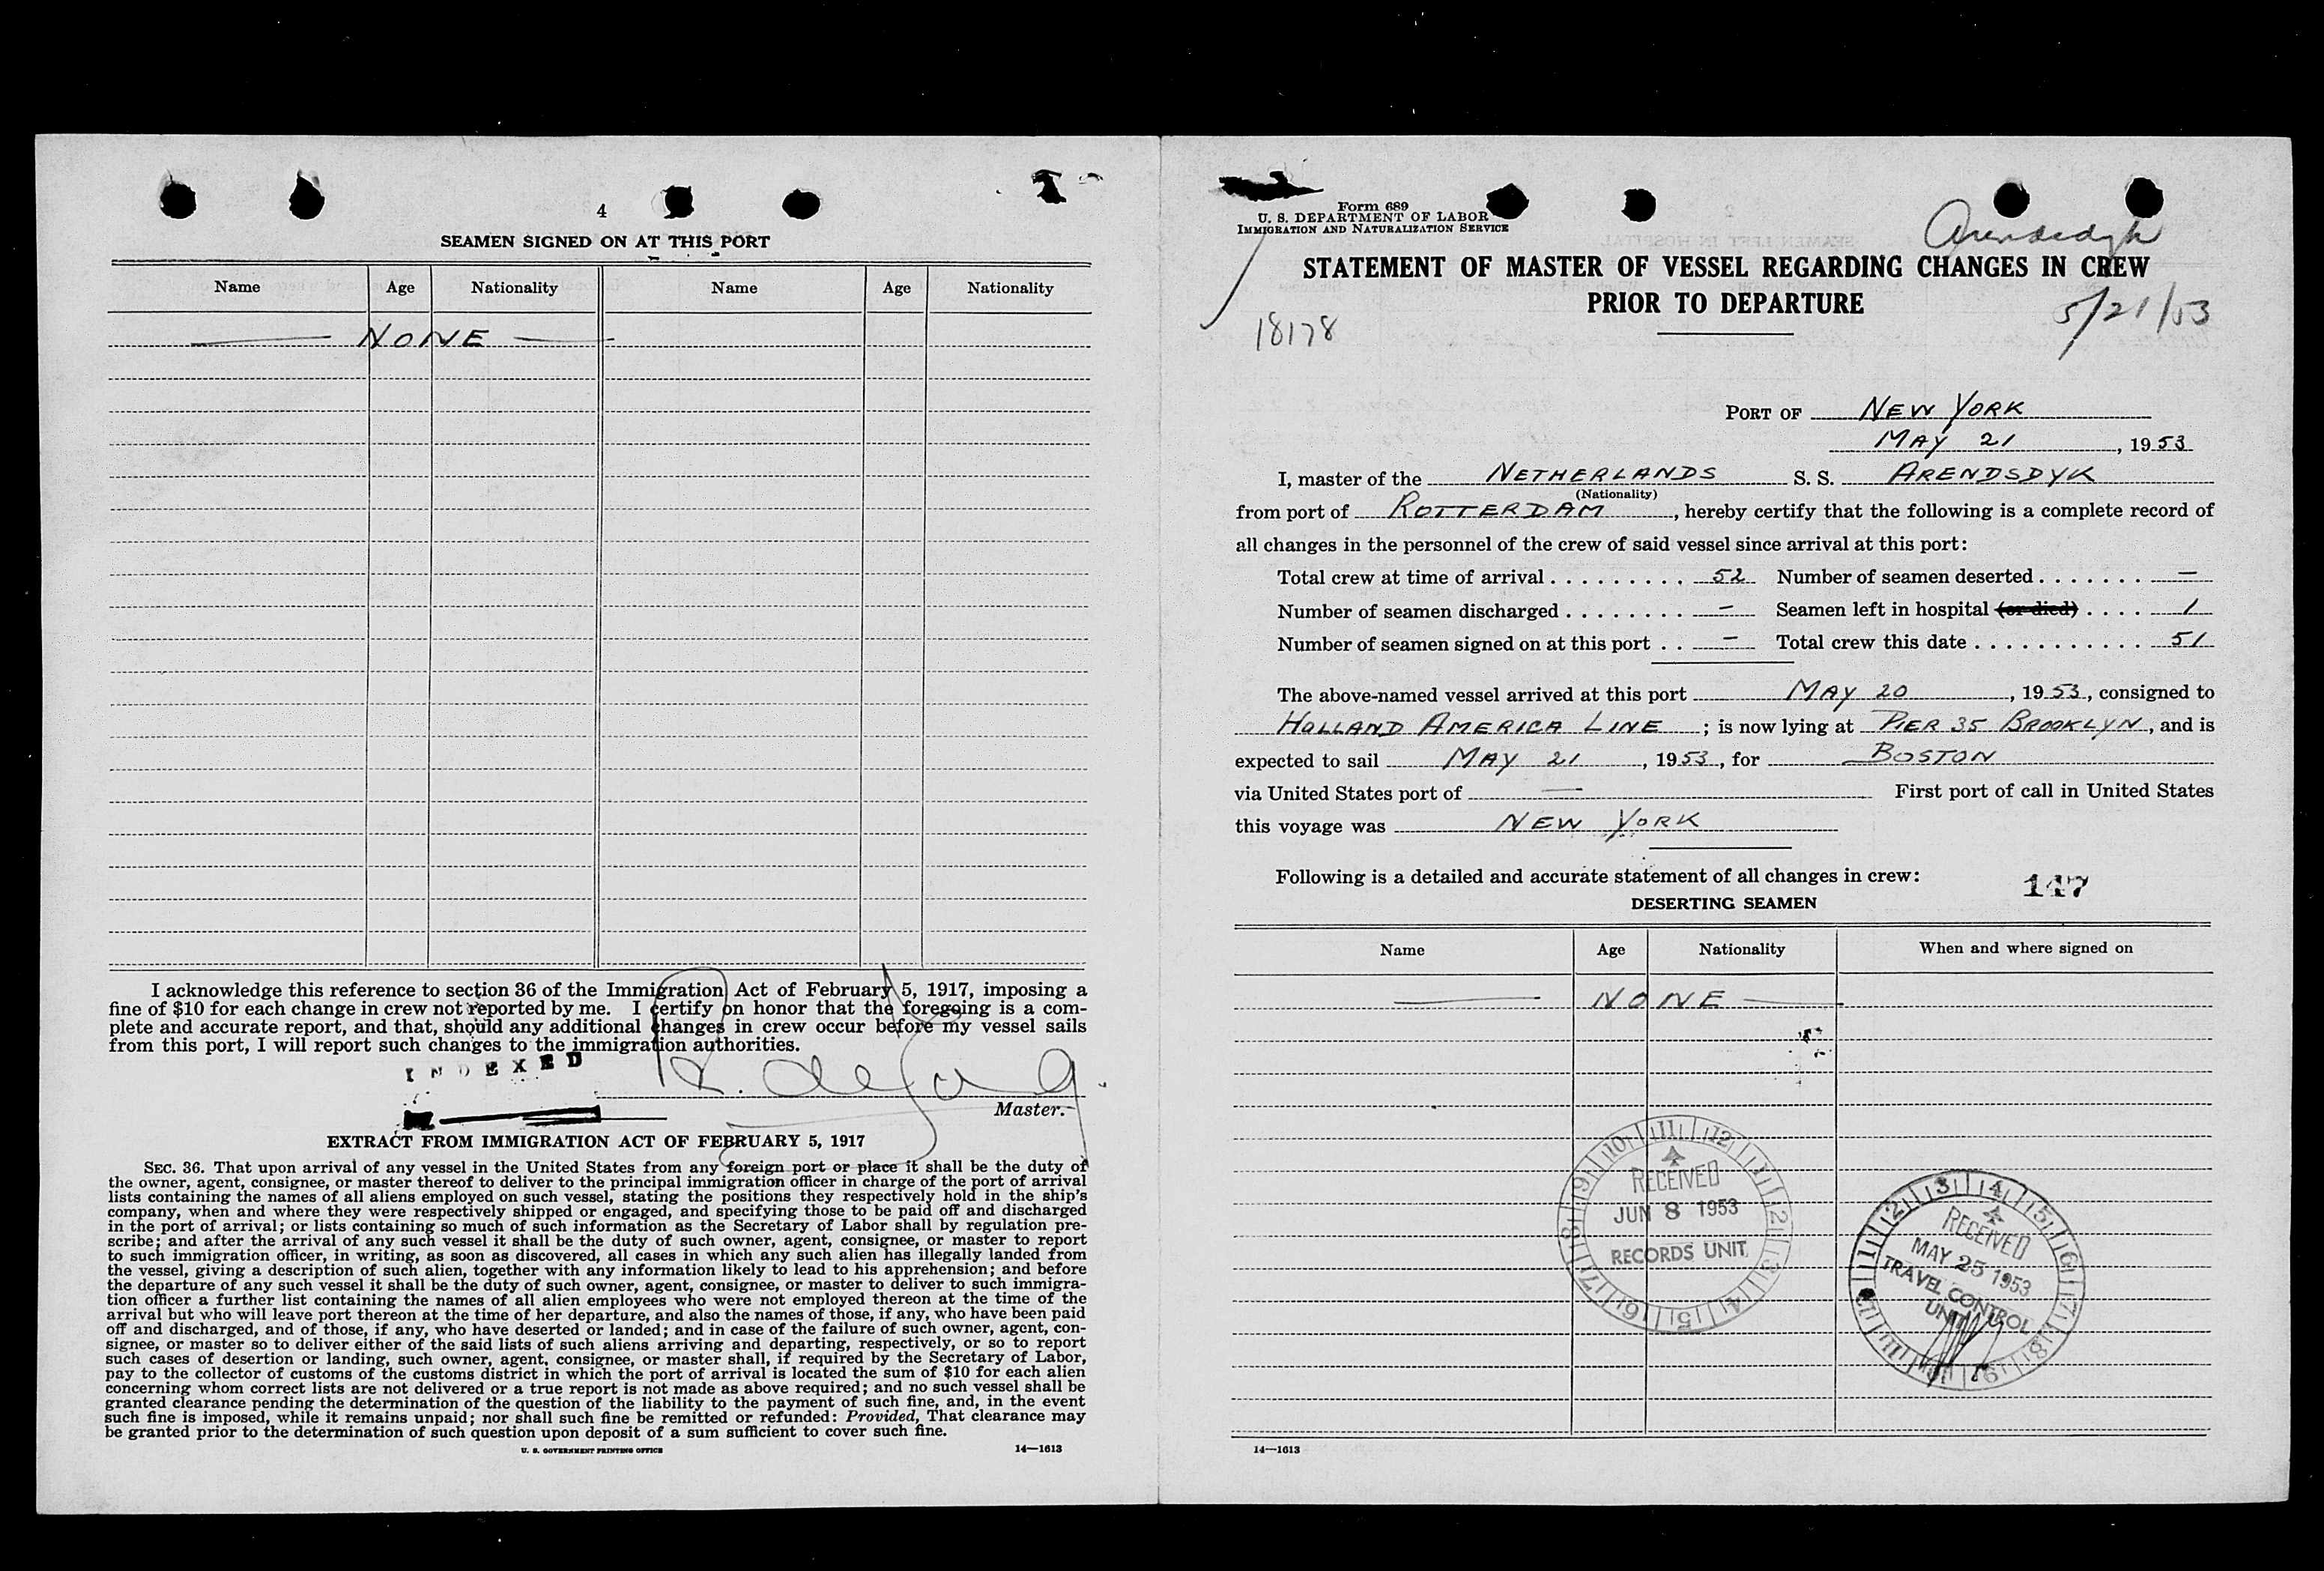 4
SEAMEN SIGNED ON AT THIS PORT
Name Age Nationality Name Age Nationality
NONE
I acknowledge this reference to section 36 of the Immigration Act of February 5, 1917, imposing a
fine of $10 for each change in crew not reported by me. I certify on honor that the foregoing is a com-
plete and accurate report, and that, should any additional changes in crew occur before my vessel sails
from this port, I will report such changes to the immigration authorities.
INDEXED
Master.
EXTRACT FROM IMMIGRATION ACT OF FEBRUARY 5, 1917
SEC. 36. That upon arrival of any vessel in the United States from any foreign port or place it shall be the duty of
the owner, agent, consignee, or master thereof to deliver to the principal immigration officer in charge of the port of arrival
lists containing the names of all aliens employed on such vessel, stating the positions they respectively hold in the ship's
company, when and where they were respectively shipped or engaged, and specifying those to be paid off and discharged
in the port of arrival; or lists containing so much of such information as the Secretary of Labor shall by regulation pre-
scribe; and after the arrival of any such vessel it shall be the duty of such owner, agent, consignee, or master to report
to such immigration officer, in writing, as soon as discovered, all cases in which any such alien has illegally landed from
the vessel, giving a description of such alien, together with any information likely to lead to his apprehension; and before
the departure of any such vessel it shall be the duty of such owner, agent, consignee, or master to deliver to such immigra-
tion officer a further list containing the names of all alien employees who were not employed thereon at the time of the
arrival but who will leave port thereon at the time of her departure, and also the names of those, if any, who have been paid
off and discharged, and of those, if any, who have deserted or landed; and in case of the failure of such owner, agent, con-
signee, or master so to deliver either of the said lists of such aliens arriving and departing, respectively, or so to report
such cases of desertion or landing, such owner, agent, consignee, or master shall, if required by the Secretary of Labor,
pay to the collector of customs of the customs district in which the port of arrival is located the sum of $10 for each alien
concerning whom correct lists are not delivered or a true report is not made as above required; and no such vessel shall be
granted clearance pending the determination of the question of the liability to the payment of such fine, and, in the event
such fine is imposed, while it remains unpaid; nor shall such fine be remitted or refunded: Provided, That clearance may
be granted prior to the determination of such question upon deposit of a sum sufficient to cover such fine.
U. S. GOVERNMENT PRINTING OFFICE 14—1613
Form 689
U. S. DEPARTMENT OF LABOR
IMMIGRATION AND NATURALIZATION SERVICE
Arendsdyk
STATEMENT OF MASTER OF VESSEL REGARDING CHANGES IN CREW
PRIOR TO DEPARTURE
5/21/53
18178
PORT OF NEW YORK
MAY 21, 1953
I, master of the NETHERLANDS S. S. ARENDSDYK
(Nationality)
from port of ROTTERDAM, hereby certify that the following is a complete record of
all changes in the personnel of the crew of said vessel since arrival at this port:
Total crew at time of arrival . . . . . . . . . 52 Number of seamen deserted . . . . . . . —
Number of seamen discharged . . . . . . . . — Seamen left in hospital (or died) . . . . 1
Number of seamen signed on at this port . . — Total crew this date . . . . . . . . . . . 51
The above-named vessel arrived at this port MAY 20, 1953, consigned to
HOLLAND AMERICA LINE; is now lying at PIER 35 BROOKLYN, and is
expected to sail MAY 21, 1953, for BOSTON
via United States port of — First port of call in United States
this voyage was NEW YORK
Following is a detailed and accurate statement of all changes in crew:
147
DESERTING SEAMEN
Name Age Nationality When and where signed on
NONE
RECEIVED
JUN 8 1953
RECORDS UNIT
RECEIVED
MAY 25 1953
TRAVEL CONTROL
UNIT
14—1613